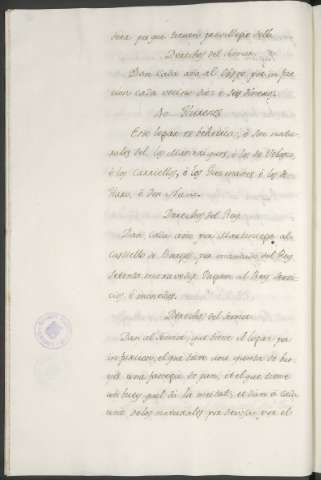 dera por que tienen previllegio dello
Derechos del Señor
Dan cada año al Obispo por infur
cion cada vecino dos è seis dineros.
Este logar es behetria; è son natu-
rales del los Manriques, è los de Velasco,
è los Carriellos, è los è los de
Haro, è Don Nuño.
Derechos del Rey
Dan cada año por Martiniega al
Castiello de Burgos, por mandado del Rey
setenta maravedis. Pagan al Rey servi-
cios, è monedas.
Derechos del Señor
Dan al Señor, que tiene el logar por
infurcion, el que tiene una yunta de bue-
yes una fanega de pan, et el que tiene
un buey quel dé la meitat, et dan à cada
uno de los naturales por devisa por el